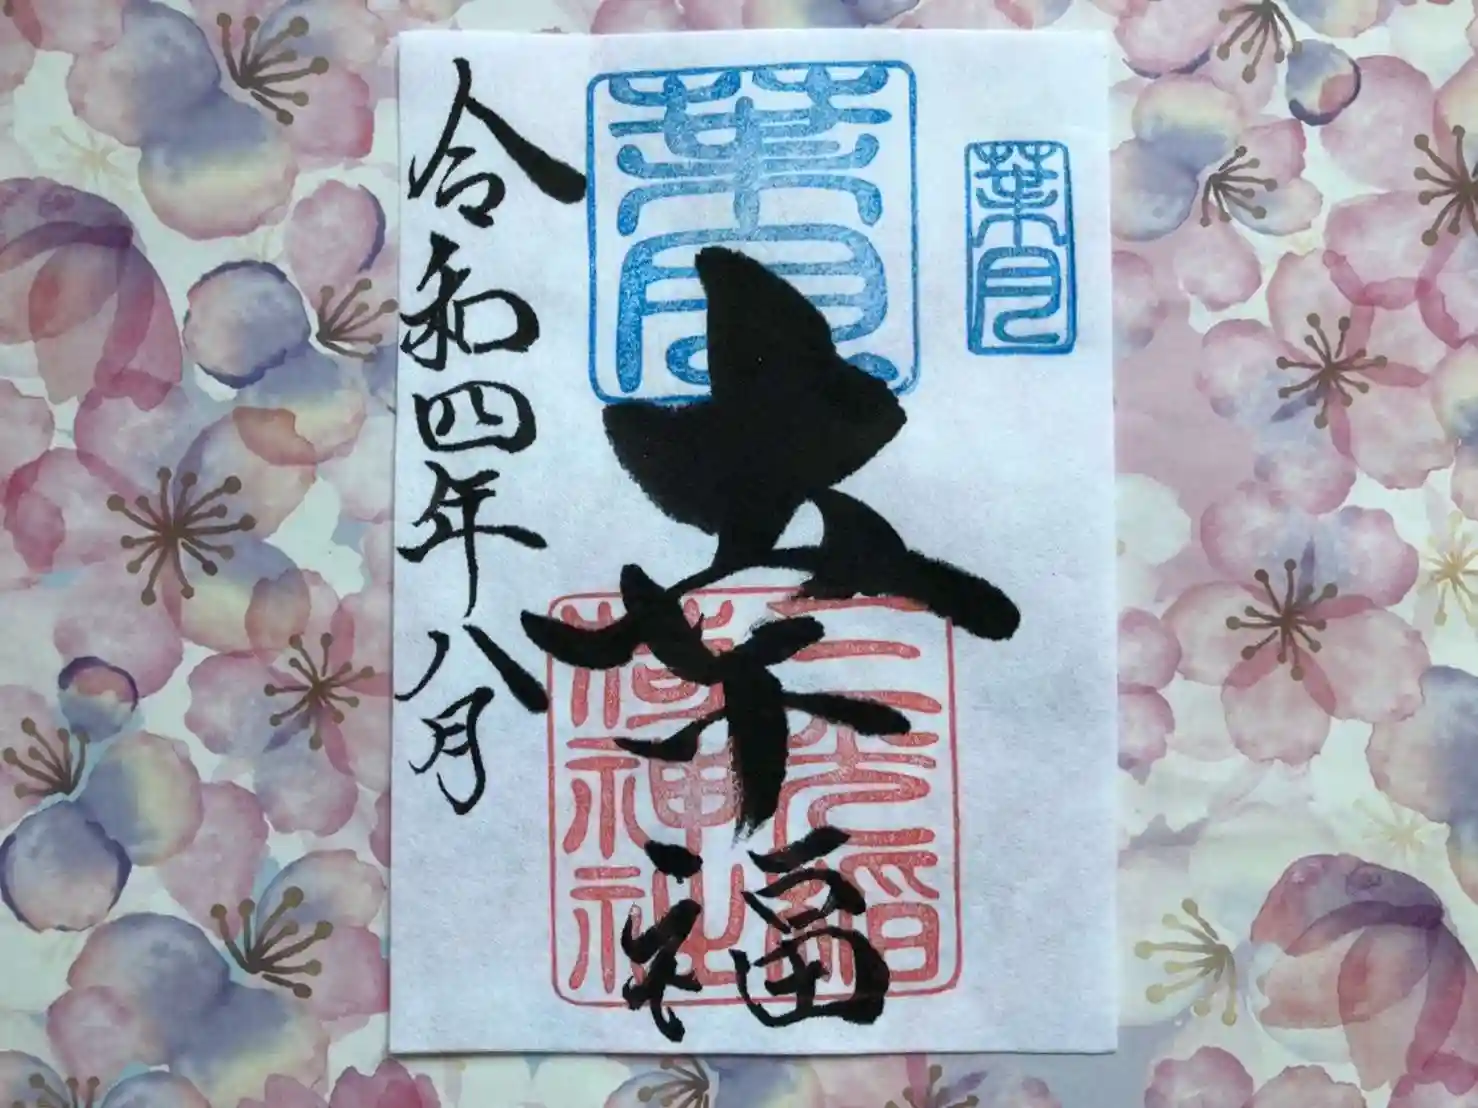 葉月
葉月
幸福
三光稲
荷神社
令和四年八月